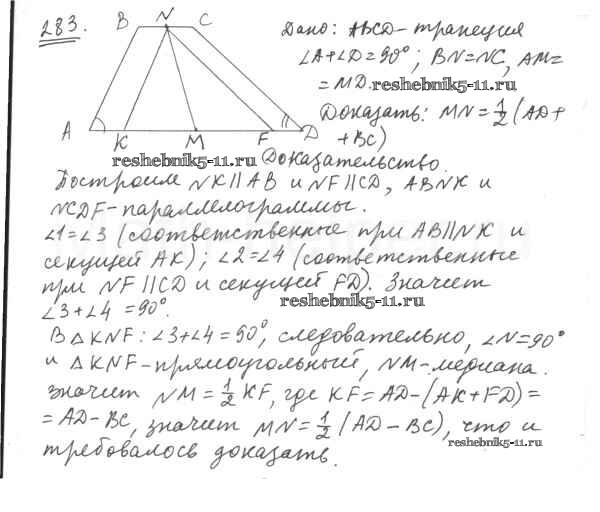 283.
B N C
A K M F D
Дано: ABCD-трапеция
∠A+∠D=90°; BN=NC, AM=
=MD.
reshebnik5-11.ru
Доказать: MN=1/2(AD+
+BC)
reshebnik5-11.ru
Доказательство.
Построим NK||AB и NF||CD, ABNK и
NCDF-параллелограммы.
∠1=∠3 (соответственные при AB||NK и
секущей AK); ∠2=∠4 (соответственные
при NF||CD и секущей FD). Значит
∠3+∠4=90°.
reshebnik5-11.ru
В △KNF: ∠3+∠4=90°, следовательно, ∠N=90°
и △KNF-прямоугольный, NM-медиана.
Значит NM=1/2KF, где KF=AD-(AK+FD)=
=AD-BC, значит MN=1/2(AD-BC), что и
reshebnik5-11.ru
требовалось доказать.